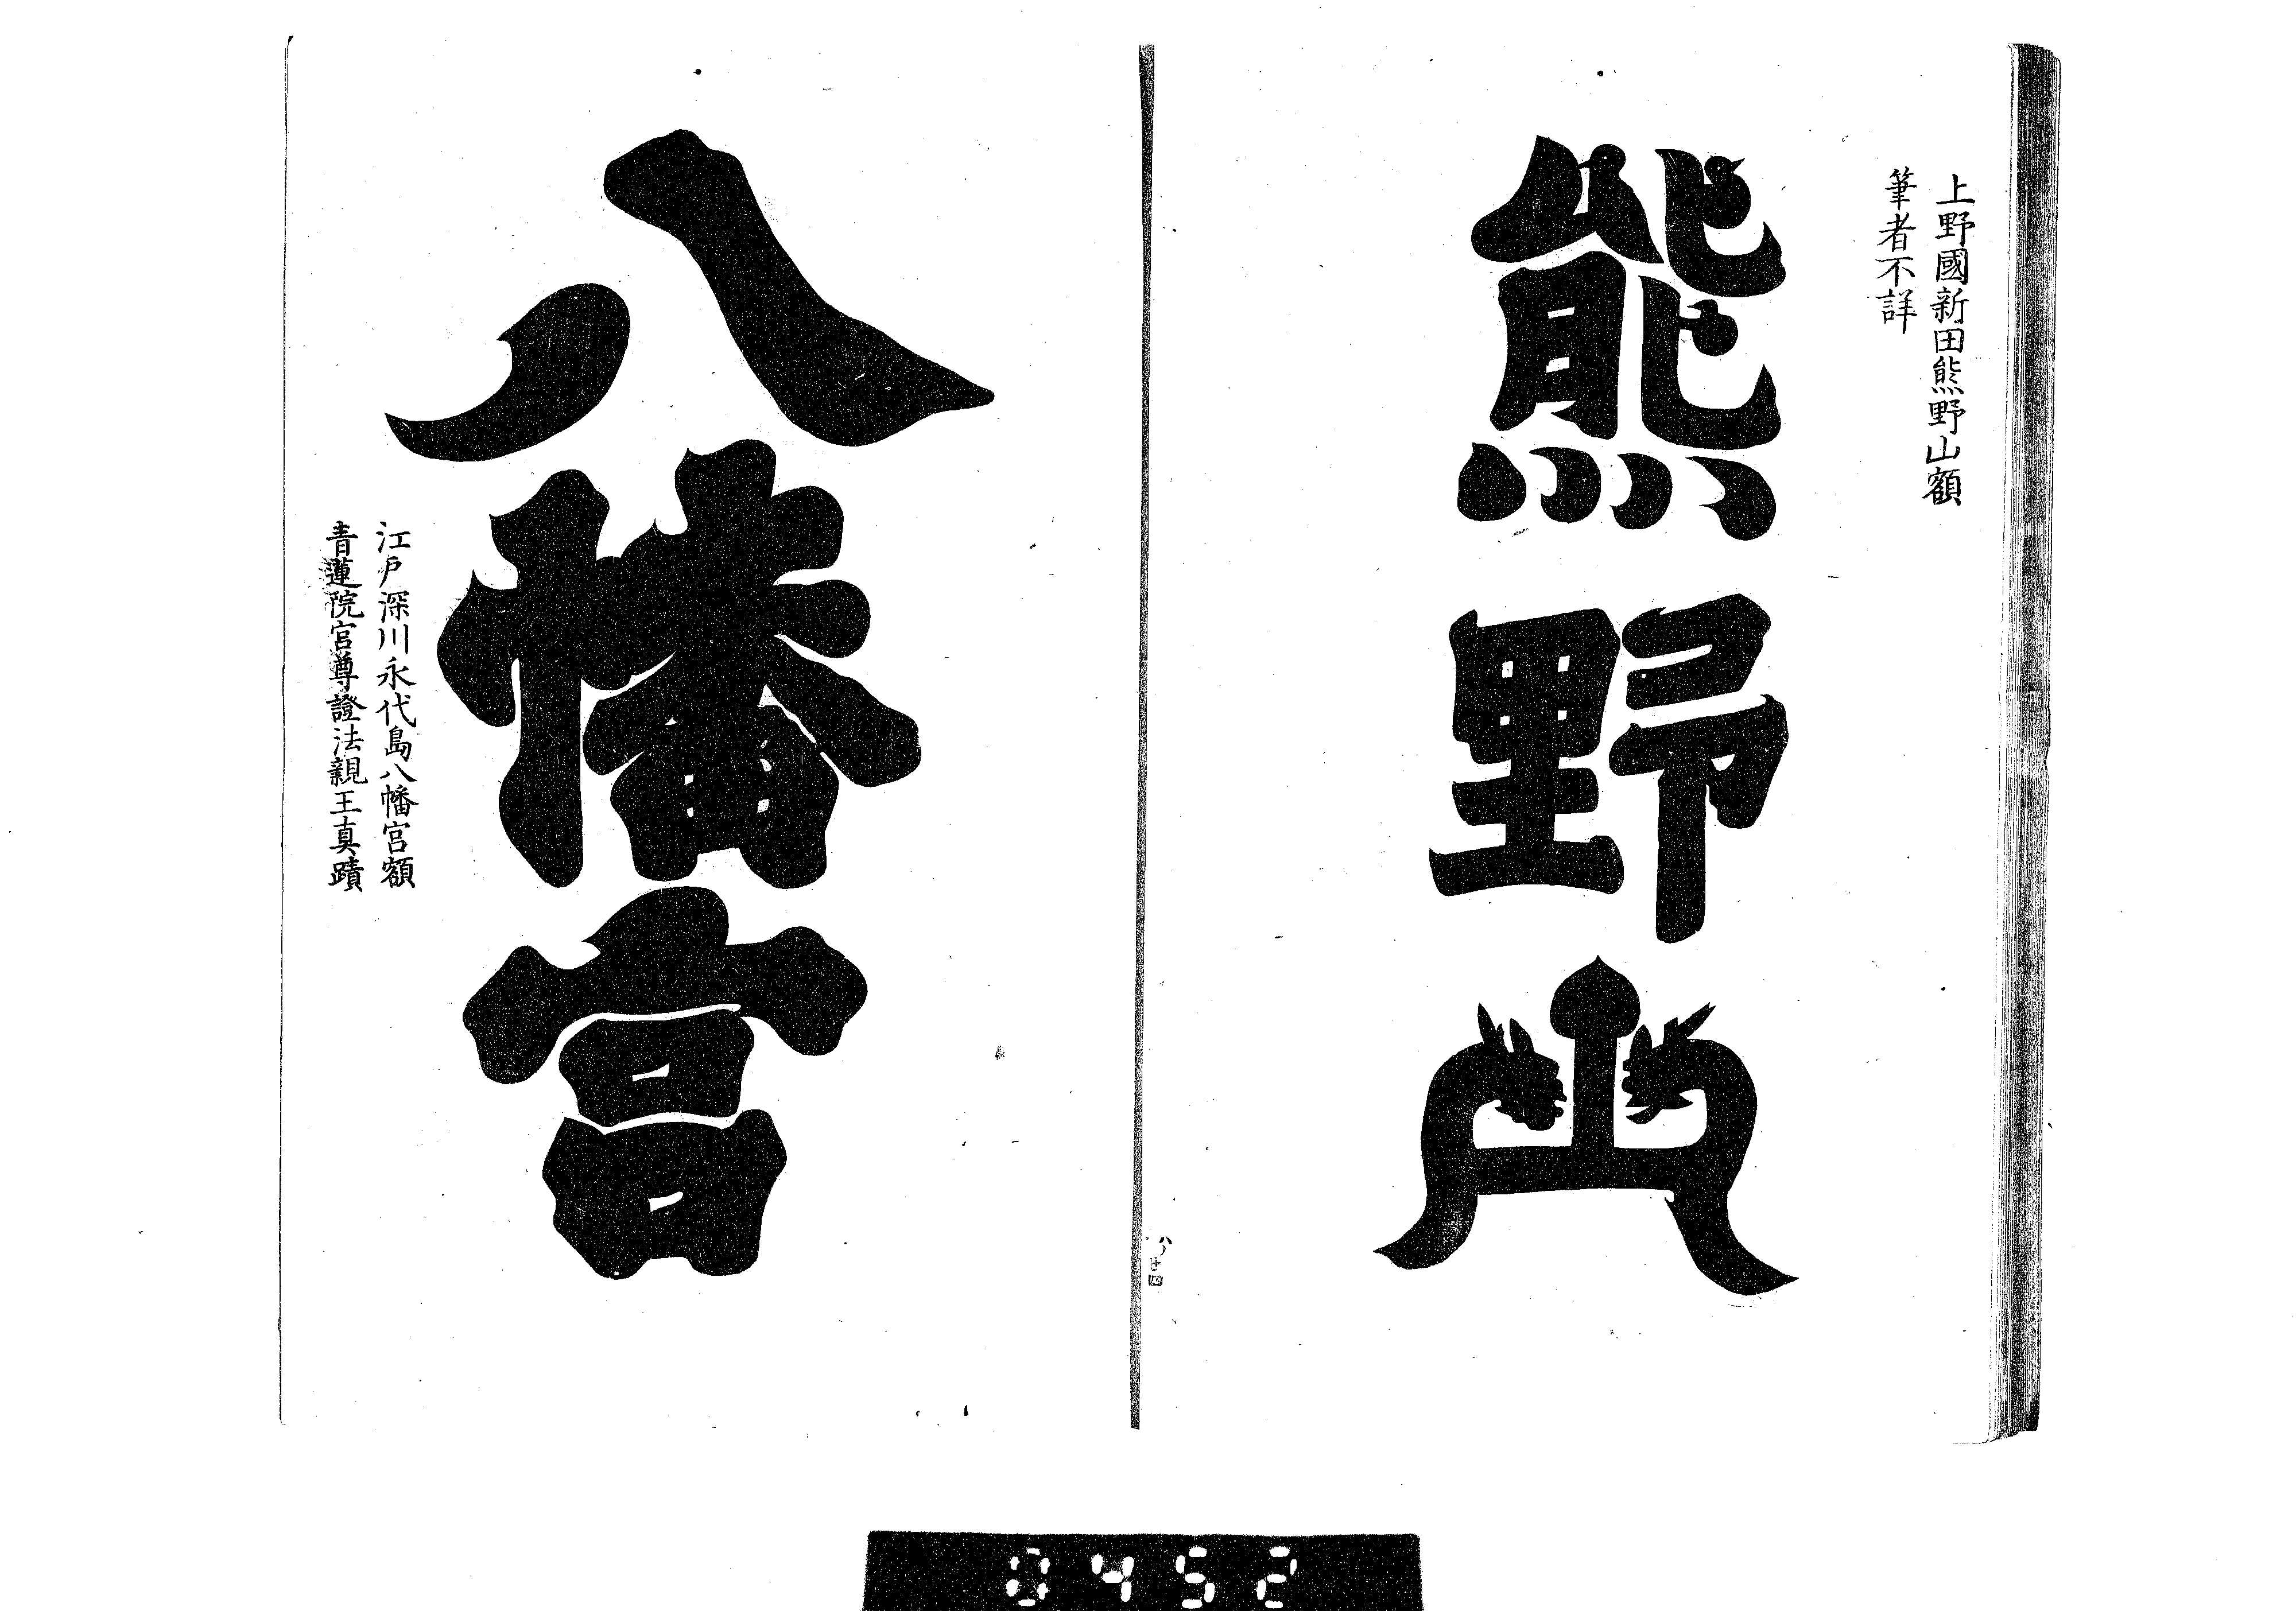 上野國新田熊野山額
筆者不詳
熊野山
八ノ廿四
八幡宮
江戸深川永代島八幡宮額
青蓮院宮尊證法親王真蹟
0452